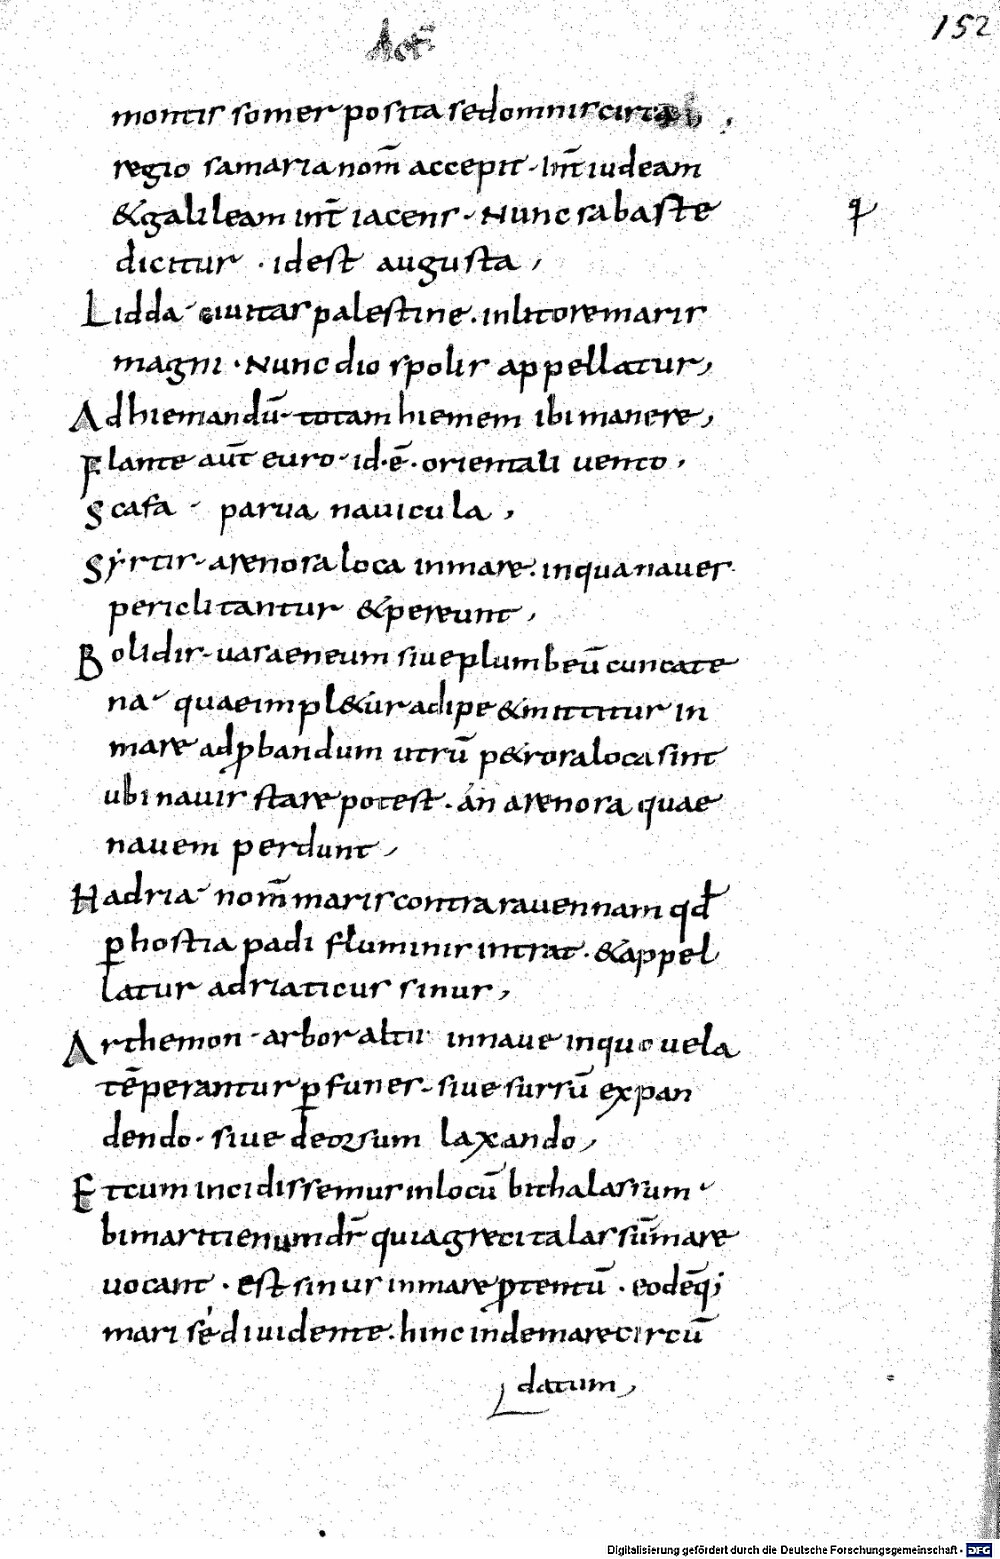 Act
152
montis somer posita sed omnis circa
regio samaria nom̄ accepit · Int̄ iudeam
& galileam int̄ iacens · Nunc sabaste
dicitur · id est augusta,
Lidda · ciuitas palestine · in litore maris
magni · Nunc diospolis appellatur,
Ad hiemandū · totam hiemem ibi manere,
Flante aut̄ euro · id · ē · orientali uento,
Scafa · parua nauicula,
Syrtis · arenosa loca in mare · in qua naues
periclitantur & pereunt,
Bolidis · uas aeneum siue plumbeū cum cate
na · quae impl&ur adipe & mittitur in
mare ad ꝓbandum utrū p&rosa loca sint
ubi nauis stare potest · án arenosa quae
nauem perdunt,
Hadria · nom̄ maris contra rauennam qđ
ꝑ hostia padi fluminis intrat · & appel
latur adriaticus sinus,
Arthemon · arbor altu in naue in quo uela
tēperantur ꝑ funes · siue sursū expan
dendo · siue deorsum laxando,
Et cum incidissemus in locū bithalassum ·
bimaritienum dr̄ quia greci talassū mare
uocant · est sinus in mare ꝓtentū · eodēq;
mari se diuidente · hinc inde mare circū
datum,
Digitalisierung gefördert durch die Deutsche Forschungsgemeinschaft - DFG